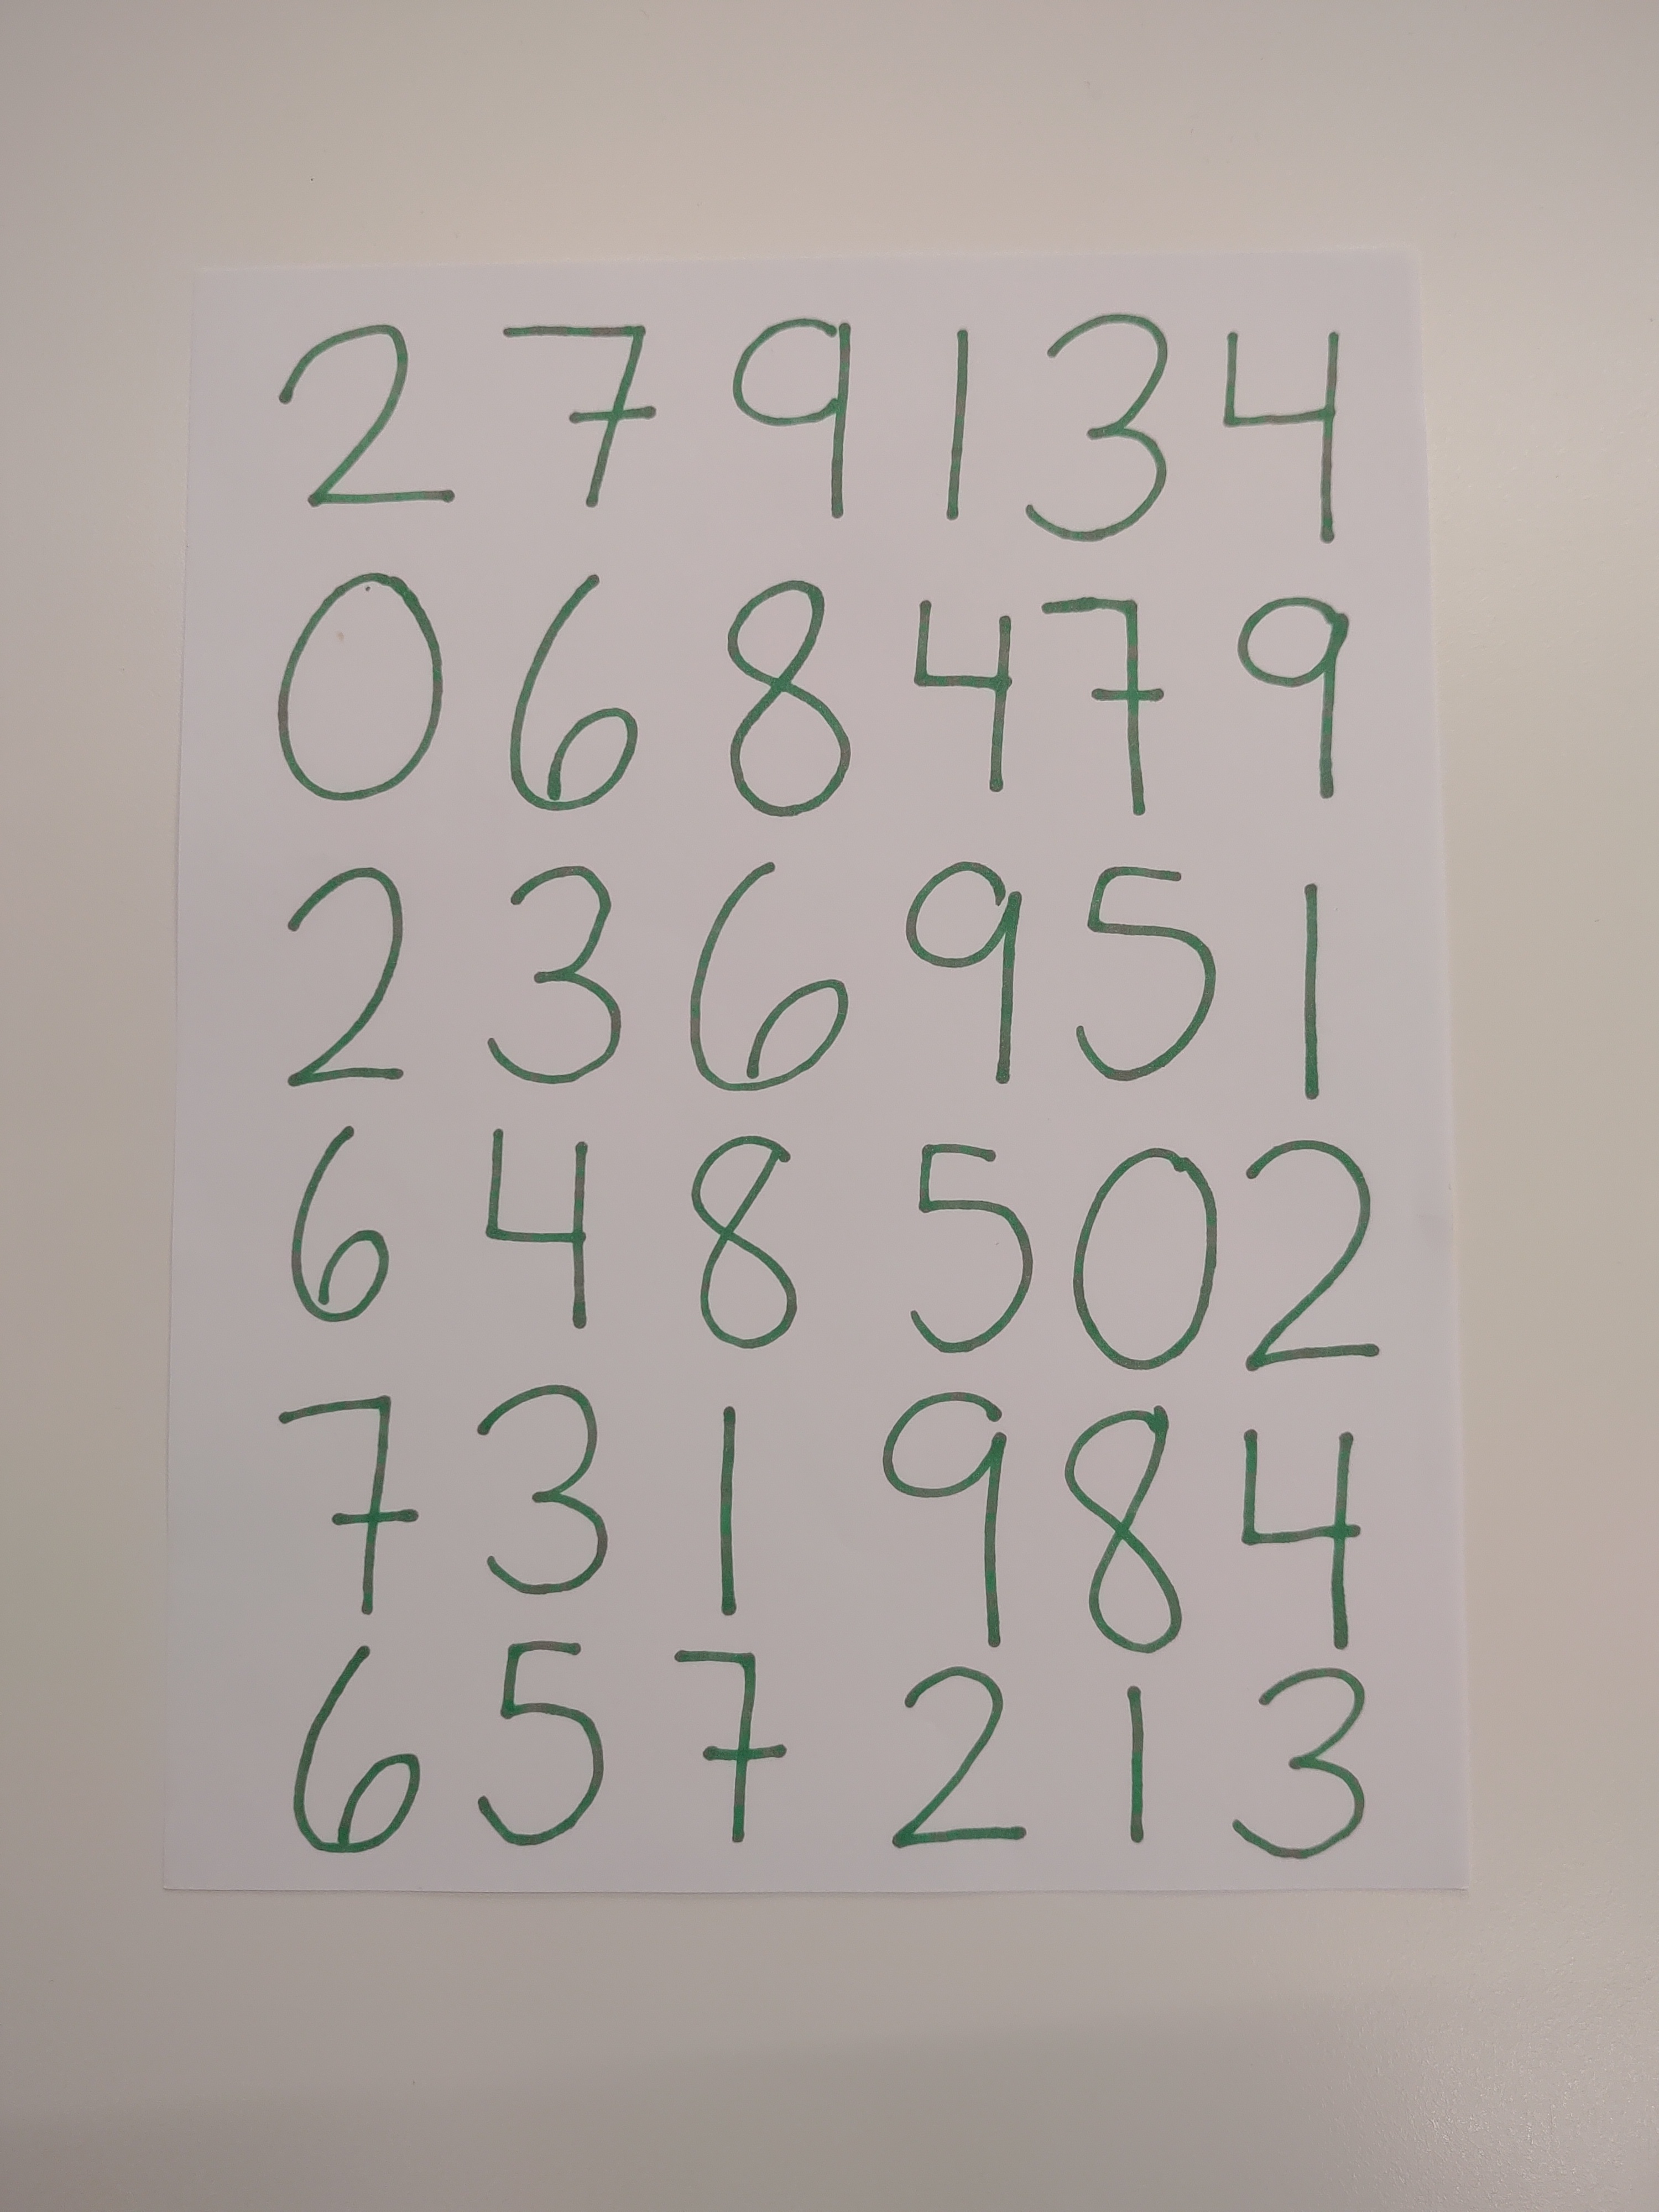 2 7 9 1 3 4
0 6 8 4 7 9
2 3 6 9 5 1
6 4 8 5 0 2
7 3 1 9 8 4
6 5 7 2 1 3